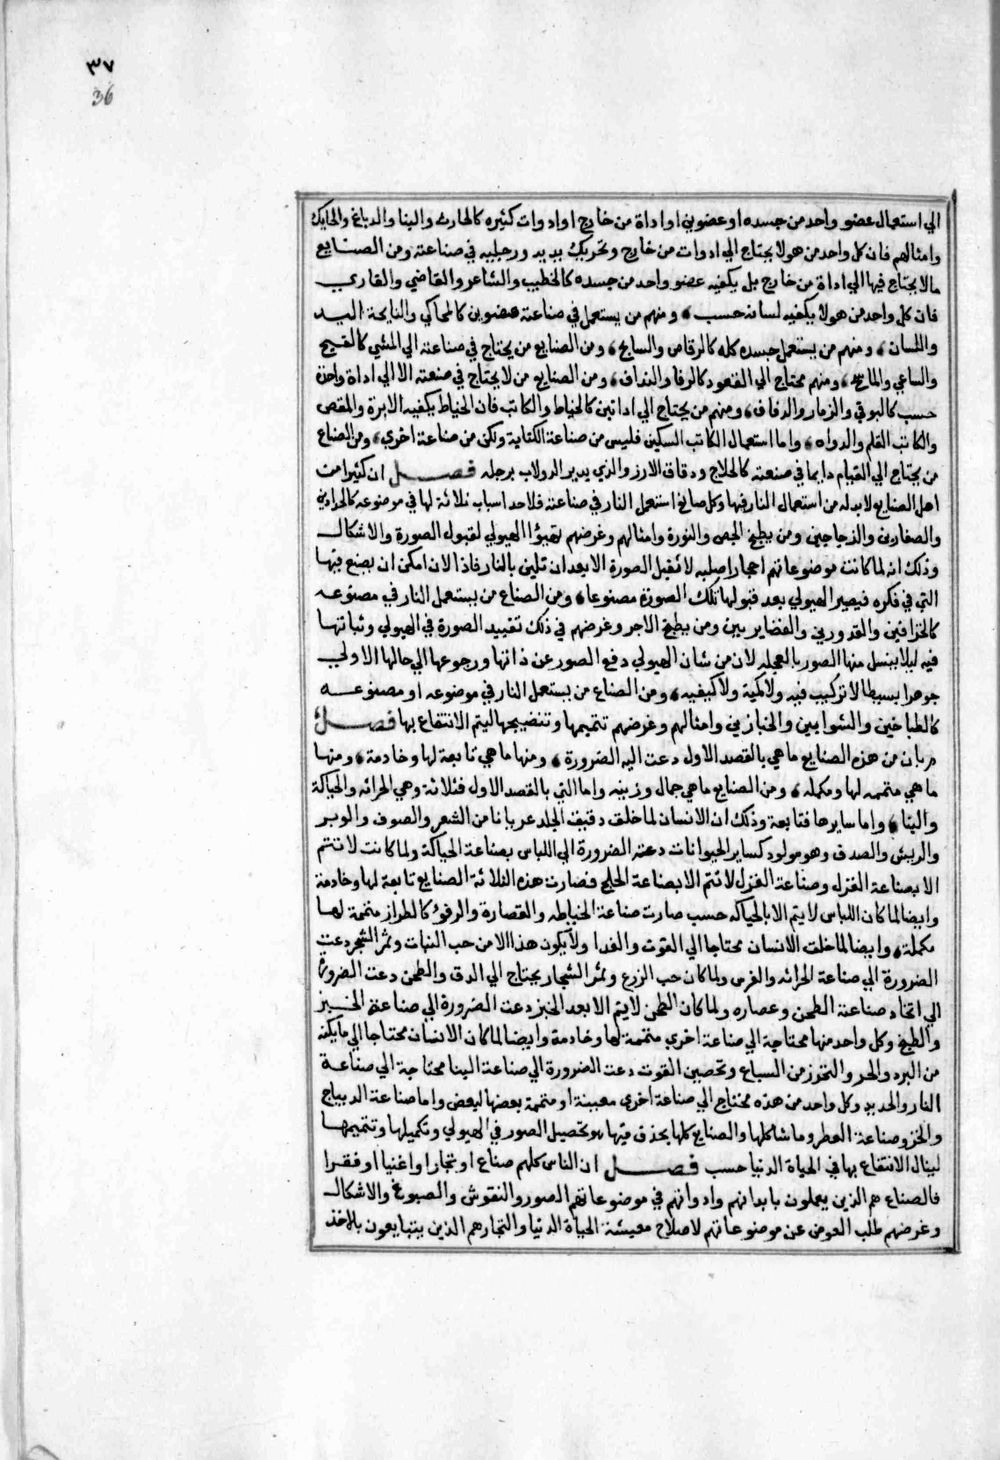 ٣٧
36
الي استعمال عضو واحد من جسده او عضوين او اداة من خارج او ادوات كثيره كالحارث والبنا والدباغ والحايك
وامثالهم فان كل واحد من هولا يحتاج الي ادوات من خارج وتحريك يديه ورجليه في صناعته ومن الصنايع
مالا يحتاج فيها الي اداة من خارج بل يكفيه عضو واحد من جسده كالخطيب والشاعر والقاضي والقاري
فان كل واحد من هولا يكفيه لسانه حسب ومنهم من يستعمل في صناعته عضوين كالمحاكي والنايحة اليد
واللسان ومنهم من يستعمل جسده كله كالرقاص والسابح ومن الصنايع من يحتاج في صناعته الي المشي كالفيج
والساعي والماسح ومنهم محتاج الي القعود كالرفا والنداف ومن الصنايع من لا يحتاج في صنعته الا الي اداة واحدة
حسب كالبوقي والزمار والدفاف ومنهم من يحتاج الي اداتين كالخياط والكاتب فان الخياط يكفيه الابرة والمقص
والكاتب القلم والدواه واما استعمال الكاتب السكين فليس من صناعة الكتابة ولكن من صناعة اخري ومن الصناع
من يحتاج الي القيام دايما في صنعته كالحلاج ودقاق الارز والذي يدير الدولاب برجله فصل ان كثيرا من
اهل الصنايع لابد له من استعمال النار فيها وكل صانع استعمل النار في صناعته فلاحد اسباب ثلاثة لها في موضوعه كالحدادين
والصفارين والزجاجين ومن يطبخ الجص والنورة وامثالهم وغرضهم تهيؤا الهيولي لقبول الصورة والاشكال
وذلك انه لما كانت موضوعاتهم احجارا صلبه لا تقبل الصورة الا بعد ان تلين بالنار فاذا لان امكن ان يصنع فيها
التي في فكره فيصير الهيولي بعد قبولها تلك الصورة مصنوعا ومن الصناع من يستعمل النار في مصنوعه
كالخزافين والقدوريين والغضايريين ومن يطبخ الاجر وغرضهم في ذلك تقييد الصورة في الهيولي وثباتها
فيه ليلا ينسل منها الصور بالعجله لان من شان الهيولي دفع الصور عن ذاتها ورجوعها الي حالها الاولي
جوهرا بسيطا لا تركيب فيه ولا كمية ولا كيفيه ومن الصناع من يستعمل النار في موضوعه او مصنوعه
كالطباخين والشوايين والخبازين وامثالهم وغرضهم تتميمها وتنضيجها ليتم الانتفاع بها فصل
بان من هذه الصنايع ما هي بالقصد الاول دعت اليه الضرورة ومنها ما هي تابعة لها وخادمة ومنها
ما هي متممه لها ومكمله ومن الصنايع ما هي جمال وزينه واما التي بالقصد الاول فثلاثة وهي الحراثه والحياكة
والبنا واما سايرها فتابعة وذلك ان الانسان لما خلق دقيق الجلد عريانا من الشعر والصوف والوبر
والريش والصدف وهو مولود كساير الحيوانات دعته الضرورة الي اللباس بصناعة الحياكة ولما كانت لا تتم
الا بصناعة الغزل وصناعة الغزل لا تتم الا بصناعة الحلج فصارت هذه الثلاثة الصنايع تابعة لها وخادمة
وايضا لما كان اللباس لا يتم الا بالحياكه حسب صارت صناعة الخياطه والقصارة والرفو كالطراز متممة لها
مكملة وايضا لما خلق الانسان محتاجا الي القوت والغدا ولا يكون هذا الا من حب النبات وثمر الشجر دعت
الضرورة الي صناعة الحراثه والغرس ولما كان حب الزرع وثمر الشجار يحتاج الي الدق والطحن دعت الضرورة
الي اتخاد صناعة الطحن وعصاره ولما كان الطحن لا يتم الا بعد الخبز دعت الضرورة الي صناعة الخبز
والطبخ وكل واحد منها محتاجة الي صناعة اخري متممة لها وخادمة وايضا لما كان الانسان محتاجا الي ما يكنه
من البرد والحر والتحرز من السباع وتحصين القوت دعت الضرورة الي صناعة البنا محتاجة الي صناعة
النار والحديد وكل واحد من هذه محتاج الي صناعة اخري معينة او متممة بعضها لبعض واما صناعة الديباج
والخز وصناعة العطر وما شاكلها والصنايع كلها يحذق فيها هو تحصيل الصور في الهيولي وتكميلها وتتميمها
لينال الانتفاع بها في الحياة الدنيا حسب فصل ان الناس كلهم صناع او تجارا واغنيا او فقرا
فالصناع هم الذين يعملون بابدانهم وادواتهم في موضوعاتهم الصور والنقوش والصبوغ والاشكال
وغرضهم طلب العوض عن موضوعاتهم لاصلاح معيشة الحياة الدنيا والتجار هم الذين يتبايعون بالاخذ